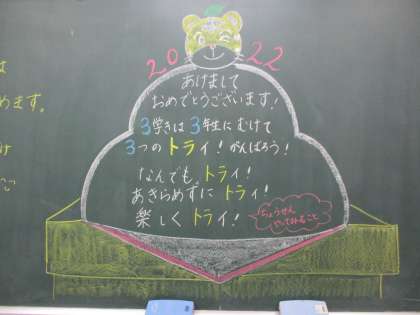 2022
あけまして
おめでとうございます！
3学きは3年生にむけて
3つのトライ！がんばろう！
なんでも、トライ！
あきらめずにトライ！
楽しくトライ！
ちょうせん
やってみること
は
めます。
け